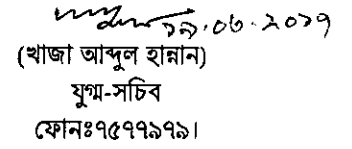 ১৯.০৬.২০১৭
(খাজা আব্দুল হান্নান)
যুগ্ম-সচিব
ফোনঃ৭৫৭৭৯৭৯।